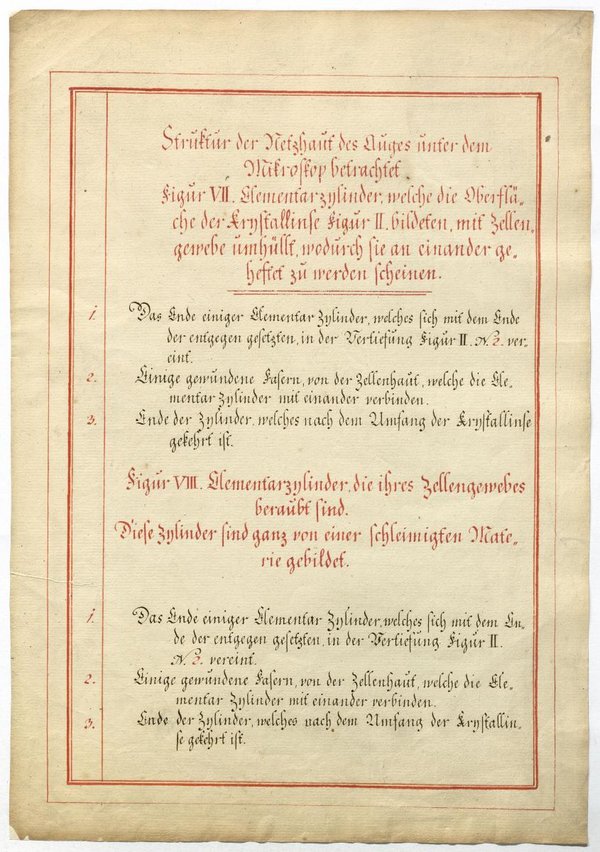 Struktur der Netzhaut des Auges unter dem
Mikroskop betrachtet.
Figur VII. Elementarzylinder, welche die Oberflä=
che der Krystallinse Figur II. bildeten, mit Zellen,
gewebe umhüllt, wodurch sie an einander ge=
heftet zu werden scheinen.
1. Das Ende einiger Elementar Zylinder, welches sich mit dem Ende
der entgegen gesetzten, in der Vertiefung Figur II. N. 2. ver=
eint.
2. Einige gewundene Fasern, von der Zellenhaut, welche die Ele=
mentar Zylinder mit einander verbinden.
3. Ende der Zylinder, welches nach dem Umfang der Krystallinse
gekehrt ist.
Figur VIII. Elementarzylinder, die ihres Zellengewebes
beraubt sind.
Diese Zylinder sind ganz von einer schleimigten Mate=
rie gebildet.
1. Das Ende einiger Elementar Zylinder, welches sich mit dem En=
de der entgegen gesetzten, in der Vertiefung Figur II.
N. 2. vereint.
2. Einige gewundene Fasern, von der Zellenhaut, welche die Ele=
mentar Zylinder mit einander verbinden.
3. Ende der Zylinder, welches nach dem Umfang der Krystallin=
se gekehrt ist.